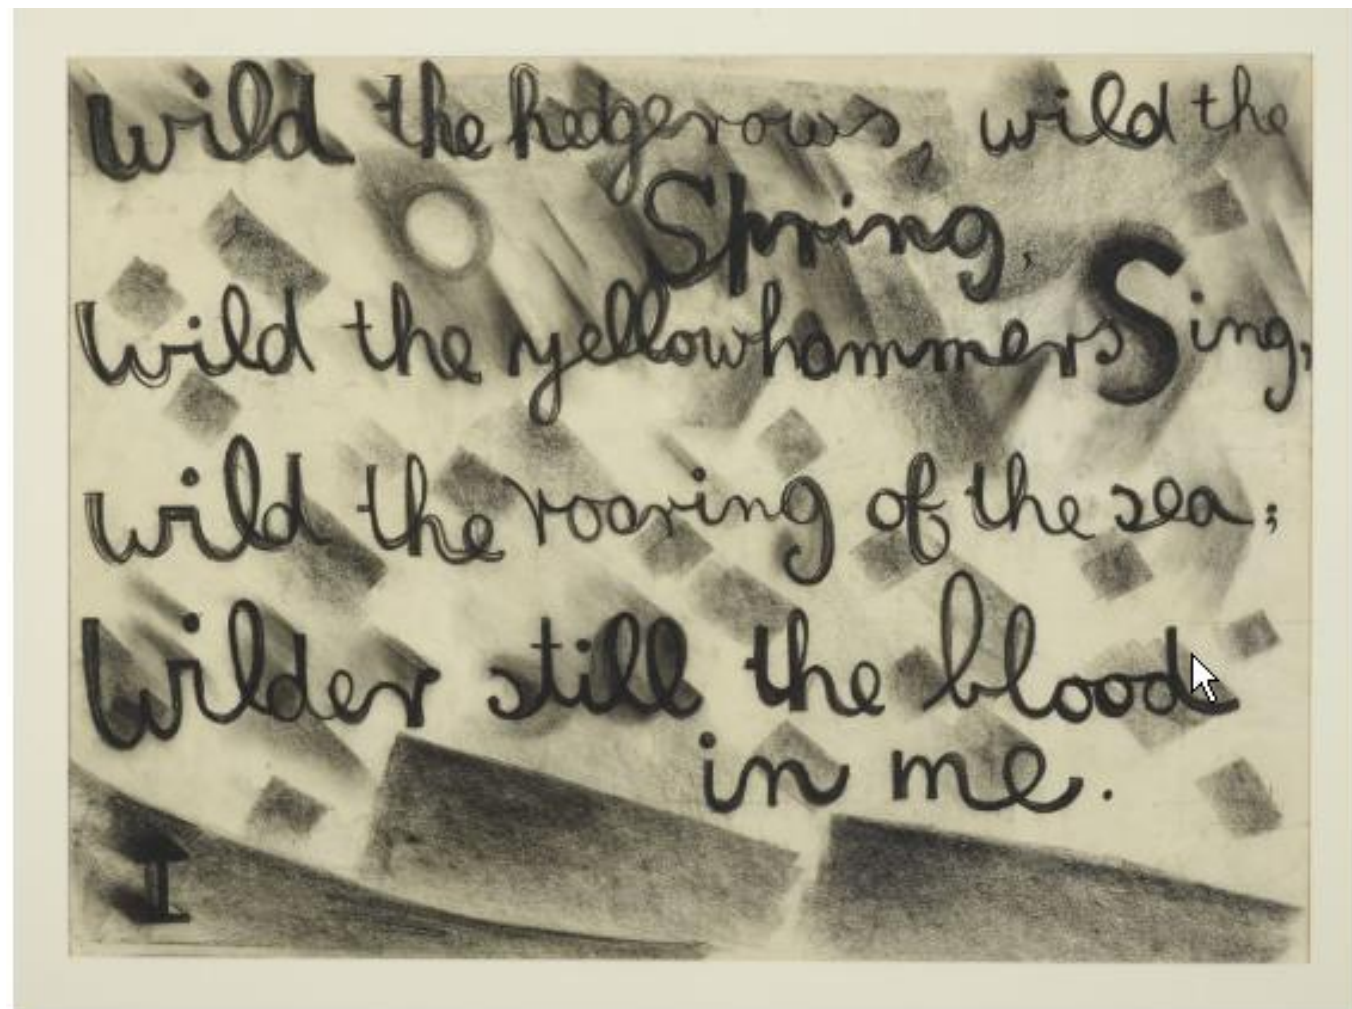 wild the hedgerows, wild the
Spring,
wild the yellowhammers Sing,
wild the roaring of the sea;
Wilder still the blood
in me.
I